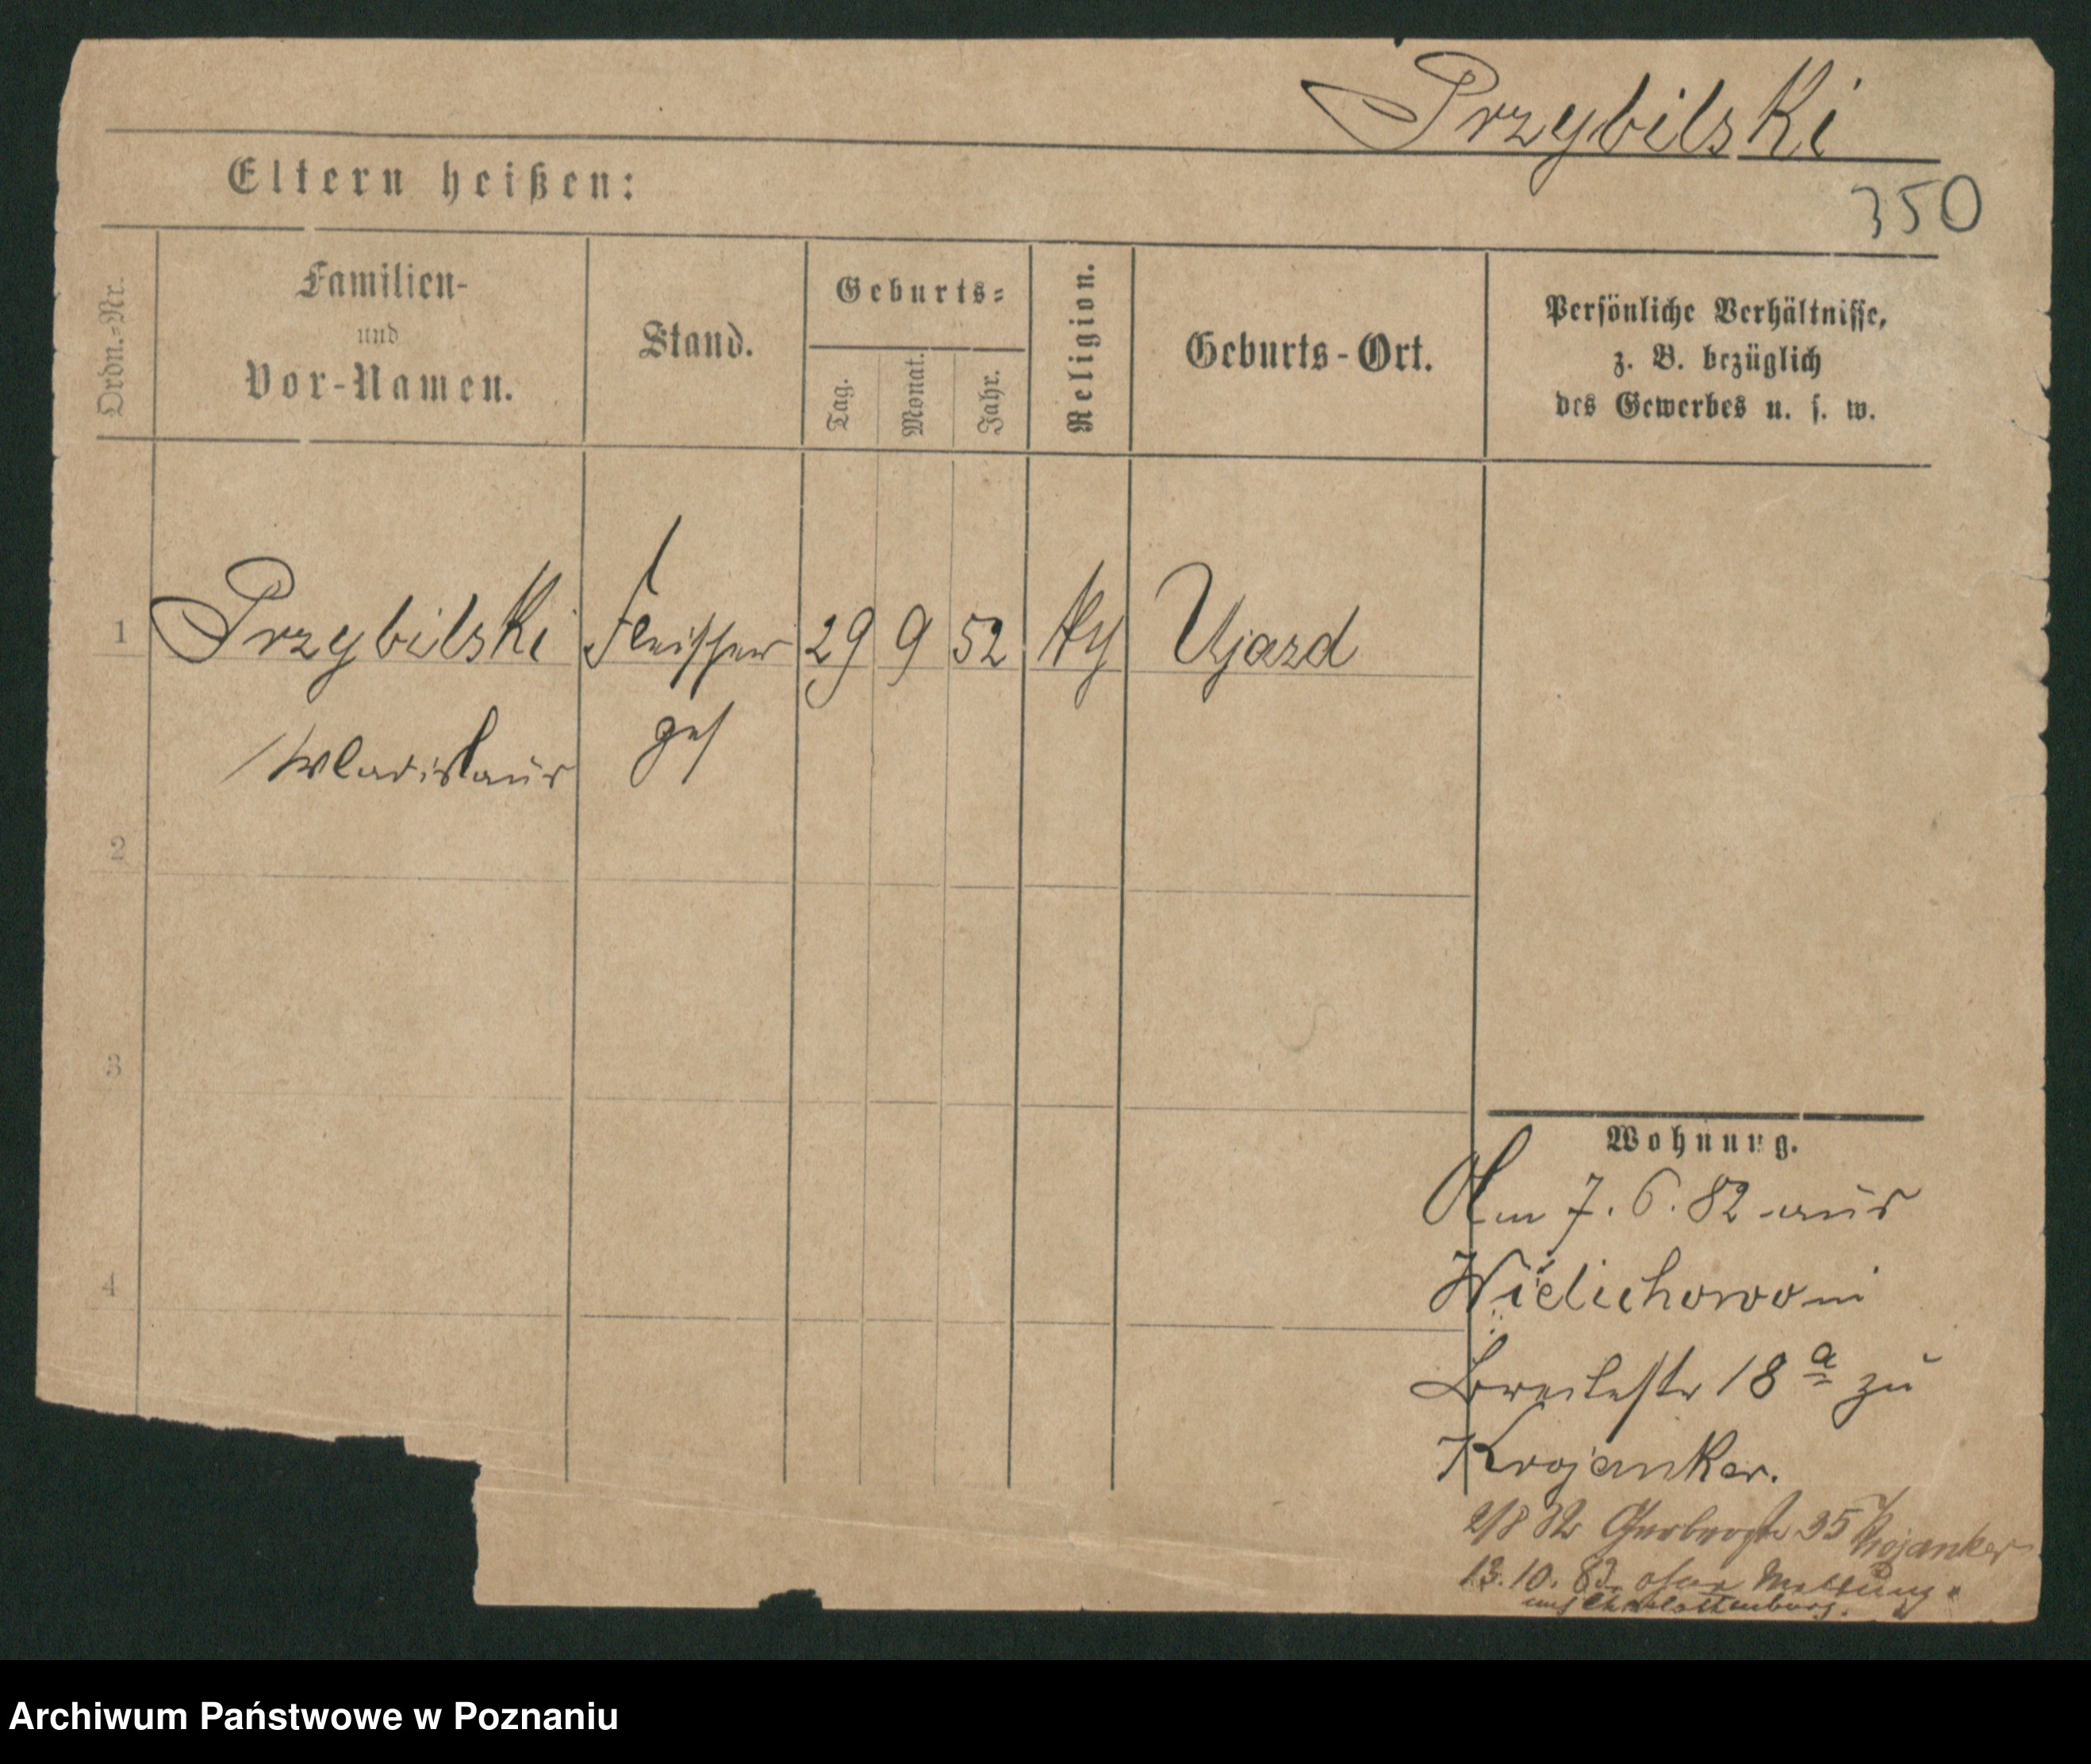 Przybilski
350
Eltern heißen:
Ordn.-Nr.
Familien-
und
Vor-Namen.
Stand.
Geburts-
Tag.
Monat.
Jahr.
Religion.
Geburts-Ort.
Persönliche Verhältnisse,
z. B. bezüglich
des Gewerbes u. s. w.
1 Przybilski Fleischer 29 9 52 Ujazd
Wladislaus ges
2
3
4
Wohnung.
Am 7. 6. 82 aus
Wielichowo in
Breitestr 18 a zu
Krojanker.
2/8 82 Gerberstr 35 Krojanker
13. 10. 83. ohne Meldung
nach Charlottenburg.
Archiwum Państwowe w Poznaniu